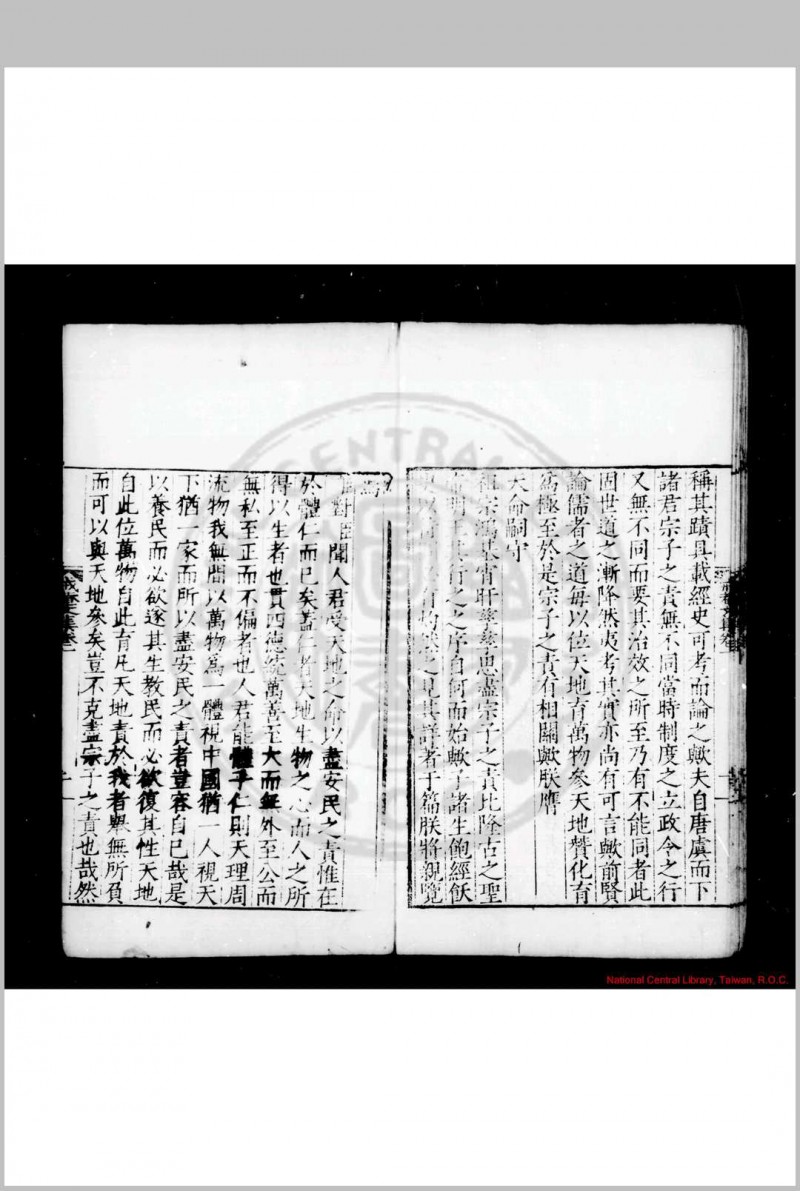 稱其蹟具載經史可考而論之歟夫自唐虞而下
諸君宗子之責無不同當時制度之立政令之行
又無不同而要其治效之所至乃有不能同者此
固世道之漸降然夷考其實亦尚有可言歟前賢
論儒者之道每以位天地育萬物參天地贊化育
為極至於是宗子之責有相關歟朕膺
天命嗣守
祖宗鴻基宵旰孳孳思盡宗子之責比隆古之聖
明行之之序自何而始歟子諸生飽經飫
有灼然之見其詳著于篇朕將親覽
臣對臣聞人君受天地之命以盡安民之責惟在
於體仁而已矣蓋仁者天地生物之心而人之所
得以生者也貫四德統萬善至大而無外至公而
無私至正而不偏者也人君能體乎仁則天理周
流物我無間以萬物為一體視中國猶一人視天
下猶一家而所以盡安民之責者豈容自已哉是
以養民而必欲遂其生教民而必欲復其性天地
自此位萬物自此育凡天地責於我者舉無所負
而可以與天地參矣豈不克盡宗子之責也哉然
National Central Library, Taiwan, R.O.C.